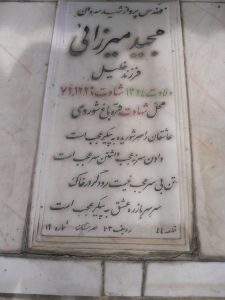 مهندس پرواز شهید سروان
مجید میرزائی
فرزند خلیل
ولادت ۱۳۴۱ شهادت ۷۴,۱۲,۲۹
محل شهادت قره باغ شوروی
عاشقان را سر شوریده به پیکر عجب است
دادن سر نه عجب داشتن سر عجب است
تن بی سر عجب نیست رود گر در خاک
سر سرباز ره عشق به پیکر عجب است
قطعه ۴۴ ردیف ۱۰۳ شماره ۱۹